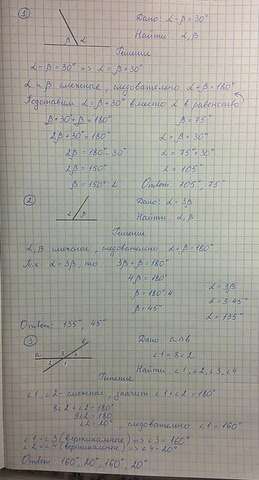 ① β α Дано: α-β=30°
Найти: α, β
Решение
α-β=30° => α=β+30°
α и β смежные, следовательно α+β=180°
Подставим α=β+30° вместо α в равенство
β+30°+β=180° β=75°
2β+30°=180° α=β+30°
2β=180°-30° α=75°+30°
2β=150° α=105°
β=150°:2 Ответ: 105°, 75°
② α β Дано: α=3β
Найти: α, β
Решение
α, β смежные, следовательно α+β=180°
Т.к α=3β, то 3β+β=180°
4β=180° α=3β
β=180°:4 α=3·45°
β=45° α=135°
Ответ: 135°, 45°
③ a b Дано: a∩b
∠1=8∠2
Найти: ∠1, ∠2, ∠3, ∠4
Решение
∠1, ∠2 - смежные, значит ∠1+∠2=180°
8∠2+∠2=180°
9∠2=180°
∠2=20° следовательно ∠1=160°
∠1=∠3 (вертикальные) => ∠3=160°
∠2=∠4 (вертикальные) => ∠4=20°
Ответ: 160°, 20°, 160°, 20°